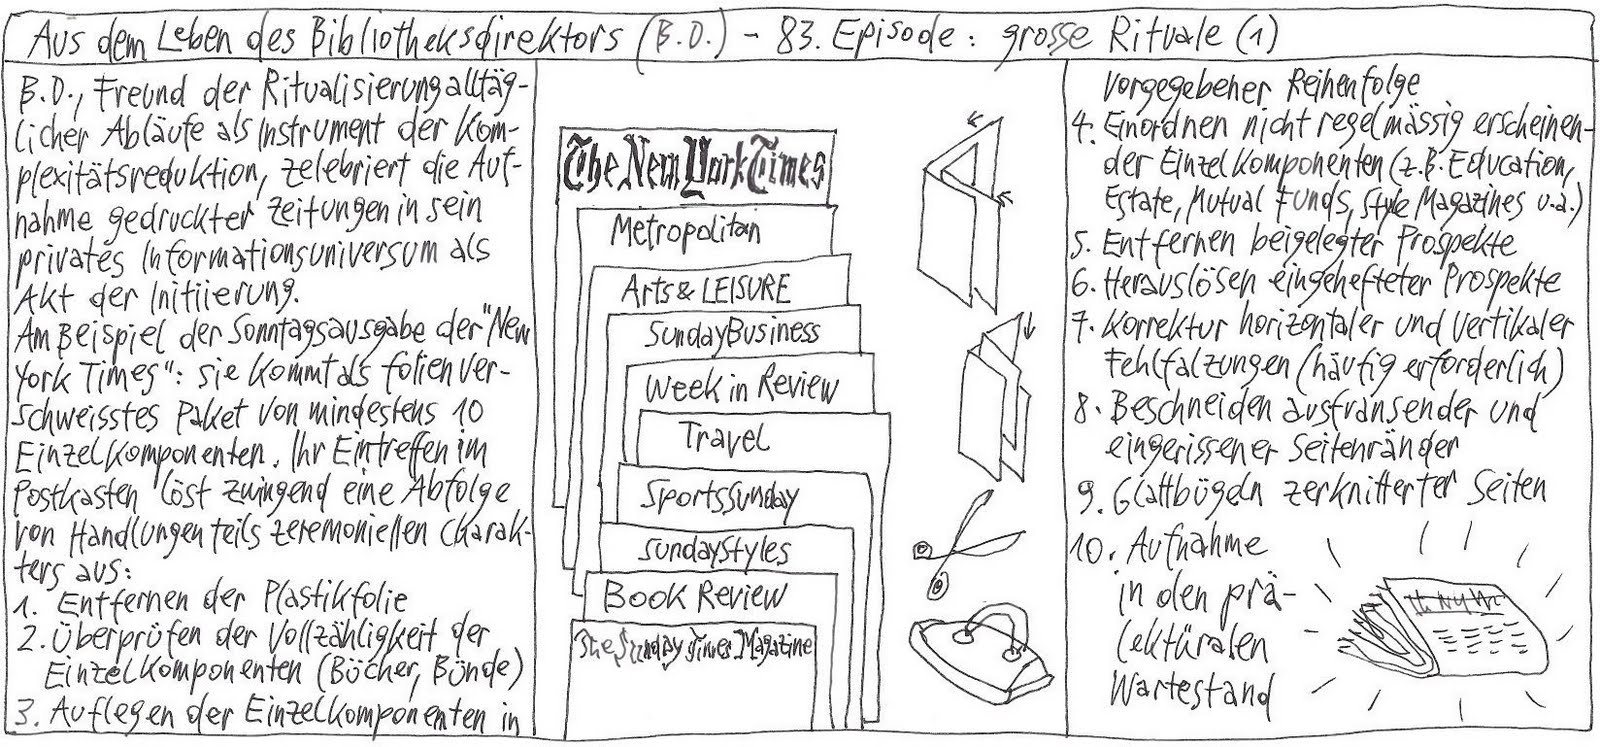 Aus dem Leben des Bibliotheksdirektors (B.D.) - 83. Episode: grosse Rituale (1)
B.D., Freund der Ritualisierung alltäg-
licher Abläufe als Instrument der Kom-
plexitätsreduktion, zelebriert die Auf-
nahme gedruckter Zeitungen in sein
privates Informationsuniversum als
Akt der Initiierung.
Am Beispiel der Sonntagsausgabe der "New
York Times": sie kommt als folienver-
schweisstes Paket von mindestens 10
Einzelkomponenten. Ihr Eintreffen im
Postkasten löst zwingend eine Abfolge
von Handlungen teils zeremoniellen Charak-
ters aus:
1. Entfernen der Plastikfolie
2. Überprüfen der Vollzähligkeit der
Einzelkomponenten (Bücher, Bünde)
3. Auflegen der Einzelkomponenten in
The New York Times
Metropolitan
Arts & LEISURE
SundayBusiness
Week in Review
Travel
SportsSunday
SundayStyles
Book Review
The Sunday Times Magazine
vorgegebener Reihenfolge
4. Einordnen nicht regelmässig erscheinen-
der Einzelkomponenten (z.B. Education,
Estate, Mutual Funds, Style Magazines u.a.)
5. Entfernen beigelegter Prospekte
6. Herauslösen eingehefteter Prospekte
7. Korrektur horizontaler und vertikaler
Fehlfalzungen (häufig erforderlich)
8. Beschneiden ausfransender und
eingerissener Seitenränder
9. Glattbügeln zerknitterter Seiten
10. Aufnahme
in den prä-
lektüralen
Wartestand